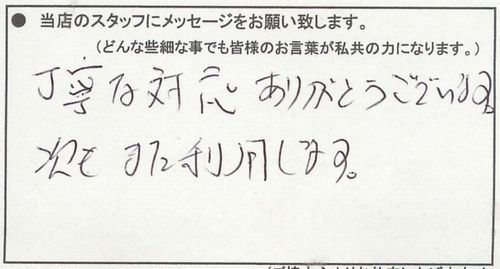 ● 当店のスタッフにメッセージをお願い致します。
(どんな些細な事でも皆様のお言葉が私共の力になります。)
丁寧な対応ありがとうございます。
次もまた利用します。